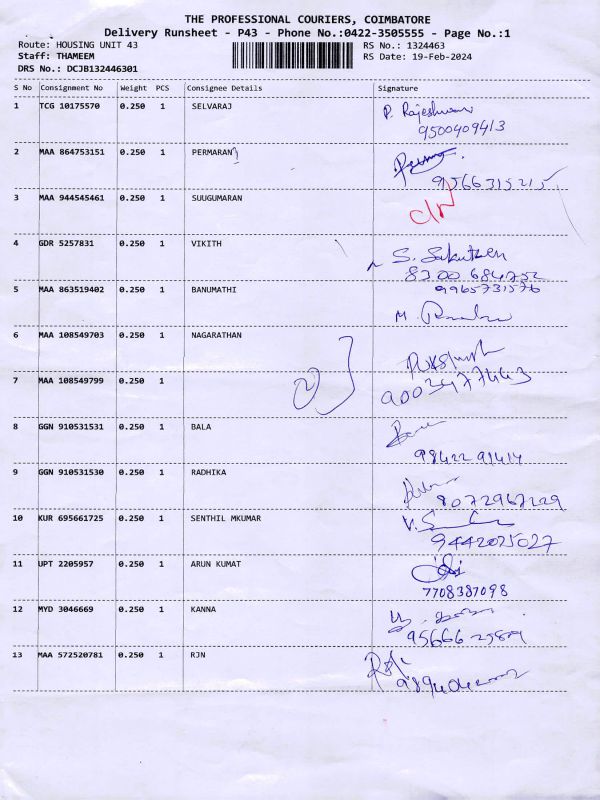 THE PROFESSIONAL COURIERS, COIMBATORE
Delivery Runsheet - P43 - Phone No.:0422-3505555 - Page No.:1
Route: HOUSING UNIT 43 RS No.: 1324463
Staff: THAMEEM RS Date: 19-Feb-2024
DRS No.: DCJB132446301
S No Consignment No Weight PCS Consignee Details Signature
1 TCG 10175570 0.250 1 SELVARAJ P. Rajeshwari
9500409413
2 MAA 864753151 0.250 1 PERMARAN
9566315215
3 MAA 944545461 0.250 1 SUUGUMARAN
4 GDR 5257831 0.250 1 VIKITH S.
8300684752
5 MAA 863519402 0.250 1 BANUMATHI 9965731576
M.
6 MAA 108549703 0.250 1 NAGARATHAN
7 MAA 108549799 0.250 1 9003477443
8 GGN 910531531 0.250 1 BALA
9842291414
9 GGN 910531530 0.250 1 RADHIKA
8072967229
10 KUR 695661725 0.250 1 SENTHIL MKUMAR V.
9442025027
11 UPT 2205957 0.250 1 ARUN KUMAT
7708387098
12 MYD 3046669 0.250 1 KANNA
13 MAA 572520781 0.250 1 RJN